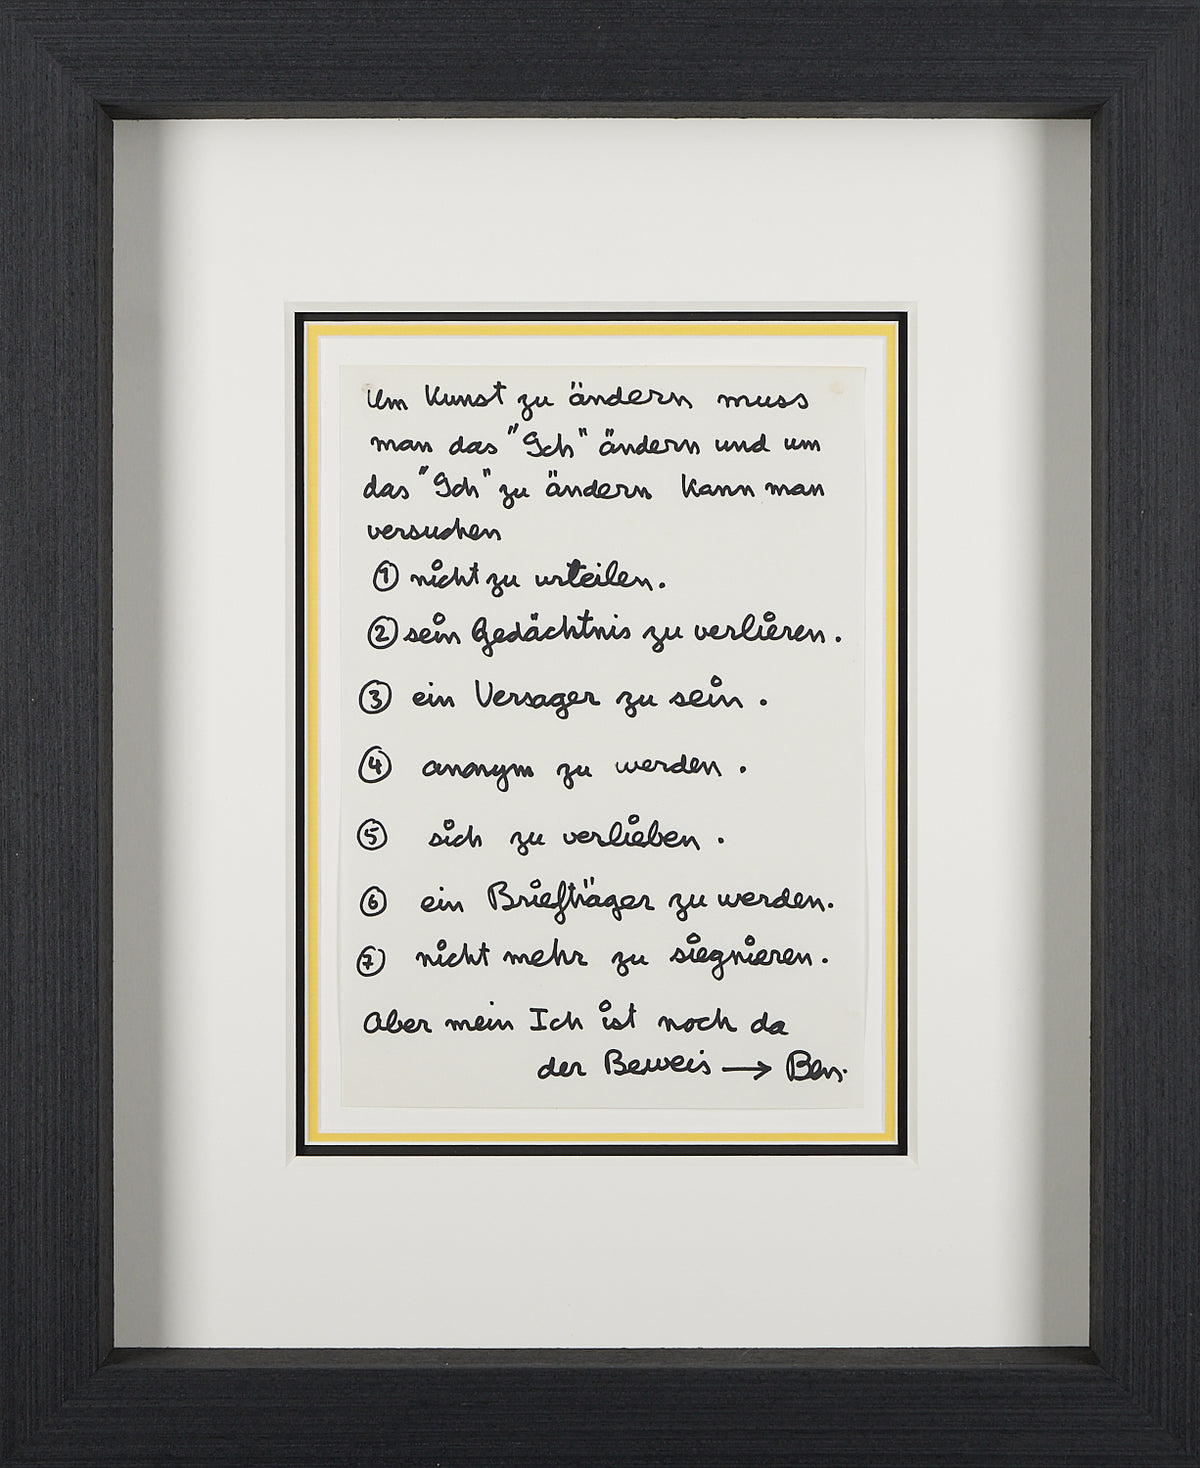 Um Kunst zu ändern muss
man das "Ich" ändern und um
das "Ich" zu ändern kann man
versuchen
① nicht zu urteilen.
② sein Gedächtnis zu verlieren.
③ ein Versager zu sein.
④ anonym zu werden.
⑤ sich zu verlieben.
⑥ ein Briefträger zu werden.
⑦ nicht mehr zu siegnieren.
Aber mein Ich ist noch da
der Beweis → Ben.